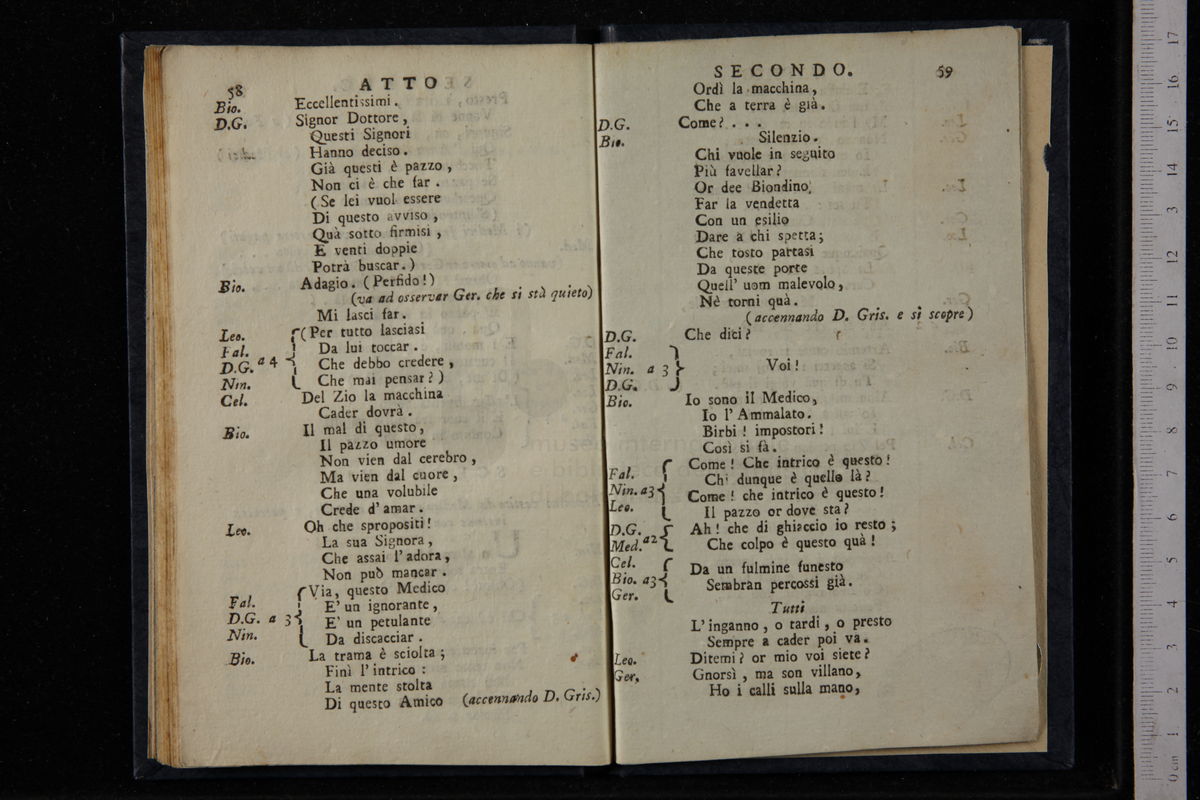 58 ATTO
Bio. Eccellentissimi.
D.G. Signor Dottore,
Questi Signori
Hanno deciso.
Già questi è pazzo,
Non ci è che far.
(Se lei vuol essere
Di questo avviso,
Quà sotto firmisi,
E venti doppie
Potrà buscar.)
Bio. Adagio. (Perfido!)
(va ad osservar Ger. che si stà quieto)
Mi lasci far.
Leo. (Per tutto lasciasi
Fal. Da lui toccar.
D.G. a 4 Che debbo credere,
Nin. Che mai pensar?)
Cel. Del Zio la macchina
Cader dovrà.
Bio. Il mal di questo,
Il pazzo umore
Non vien dal cerebro,
Ma vien dal cuore,
Che una volubile
Crede d'amar.
Leo. Oh che spropositi!
La sua Signora,
Che assai l'adora,
Non può mancar.
Via, questo Medico
Fal. E' un ignorante,
D.G. a 3 E' un petulante
Nin. Da discacciar.
Bio. La trama è sciolta;
Finì l'intrico:
La mente stolta
Di questo Amico (accennando D. Gris.)
SECONDO. 59
Ordì la macchina,
Che a terra è già.
D.G. Come? . . .
Bio. Silenzio.
Chi vuole in seguito
Più favellar?
Or dee Biondino,
Far la vendetta
Con un esilio
Dare a chi spetta;
Che tosto partasi
Da queste porte
Quell' uom malevolo,
Nè torni quà.
(accennando D. Gris. e si scopre)
D.G. Che dici?
Fal.
Nin. a 3 Voi!
D.G.
Bio. Io sono il Medico,
Io l'Ammalato.
Birbi! impostori!
Così si fà.
Come! Che intrico è questo!
Fal. Chi dunque è quello là?
Nin. a3 Come! che intrico è questo!
Leo. Il pazzo or dove sta?
D.G. Ah! che di ghiaccio io resto;
Med. a2 Che colpo è questo quà!
Cel. Da un fulmine funesto
Bio. a3 Sembran percossi già.
Ger.
Tutti
L'inganno, o tardi, o presto
Sempre a cader poi va.
Leo. Ditemi? or mio voi siete?
Ger. Gnorsì, ma son villano,
Ho i calli sulla mano,